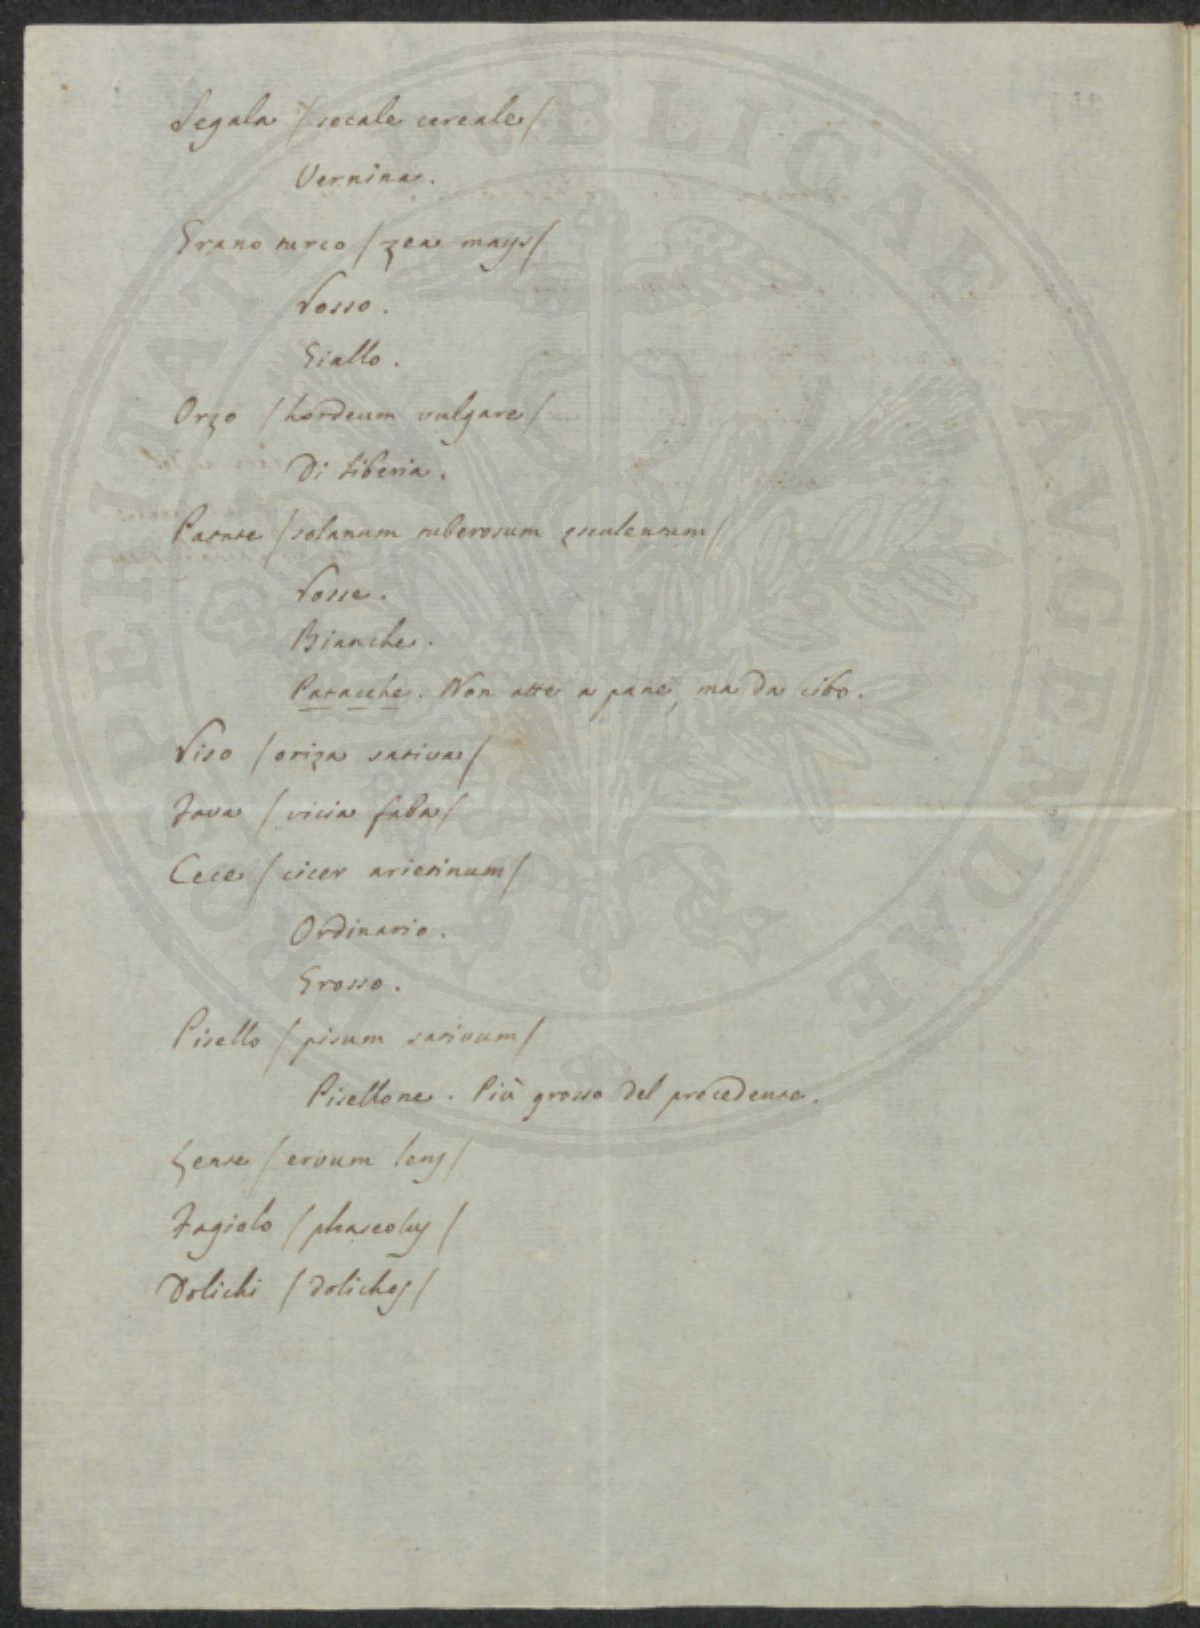 Segala / secale cereale /
Vernina.
Grano turco / zea mays /
Rosso.
Giallo.
Orzo / hordeum vulgare /
Di Siberia.
Patate / solanum tuberosum esculentum /
Rosse.
Bianche.
Patacche. Non atte a pane, ma da cibo.
Riso / oriza sativa /
Fava / vicia faba /
Cece / cicer arietinum /
Ordinario.
Grosso.
Pisello / pisum sativum /
Pisellone. Più grosso del precedente.
Lente / ervum lens /
Fagiolo / phaseolus /
Dolichi / dolichos /
PROSPERITATI PUBLICAE AVGENDAE